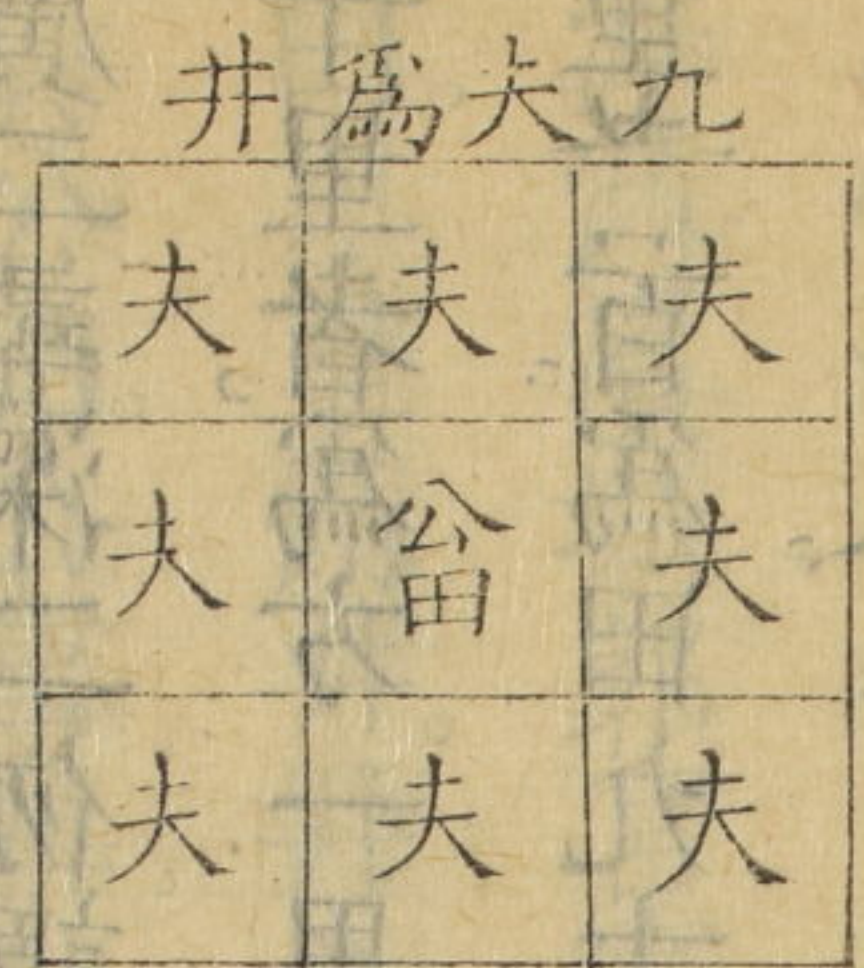 九夫為井
夫 夫 夫
夫 公田 夫
夫 夫 夫